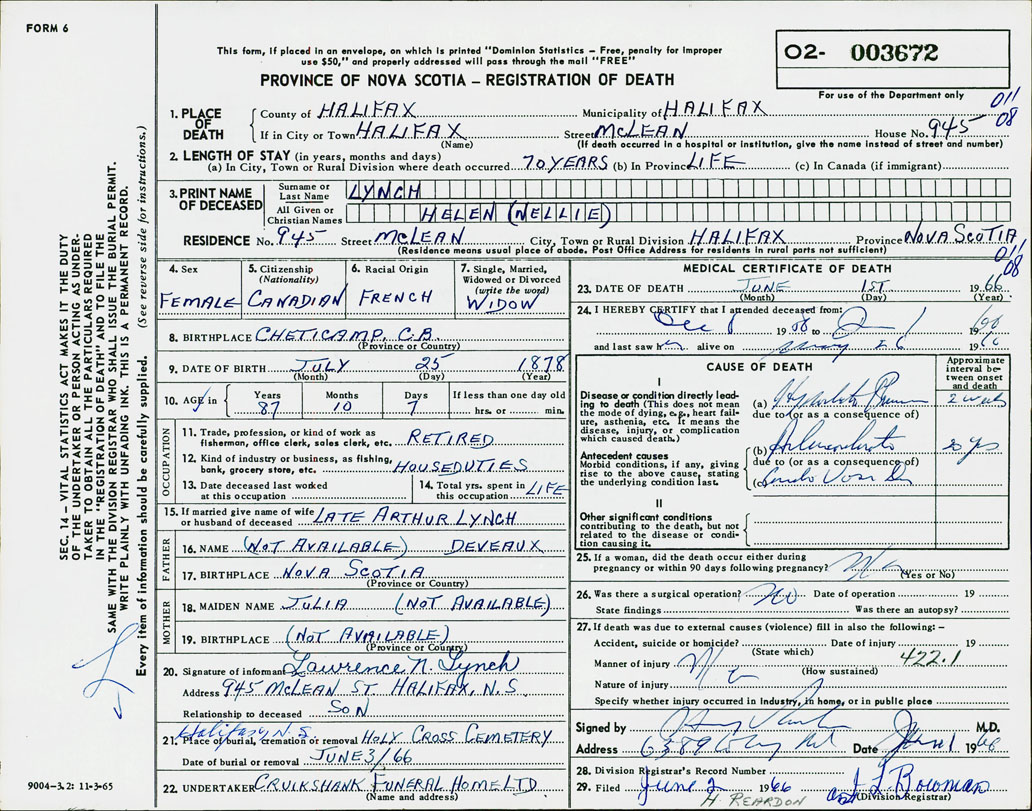 FORM 6
This form, if placed in an envelope, on which is printed "Dominion Statistics – Free, penalty for improper
use $50," and properly addressed will pass through the mail "FREE"
PROVINCE OF NOVA SCOTIA – REGISTRATION OF DEATH
O2- 003672
For use of the Department only
011
08
1. PLACE OF DEATH
County of HALIFAX Municipality of HALIFAX
If in City or Town HALIFAX Street McLEAN House No. 945
(Name) (If death occurred in a hospital or institution, give the name instead of street and number)
2. LENGTH OF STAY (in years, months and days)
(a) In City, Town or Rural Division where death occurred 70 YEARS (b) In Province LIFE (c) In Canada (if immigrant)
3. PRINT NAME OF DECEASED
Surname or Last Name LYNCH
All Given or Christian Names HELEN (NELLIE)
RESIDENCE No. 945 Street McLEAN City, Town or Rural Division HALIFAX Province NOVA SCOTIA
(Residence means usual place of abode. Post Office Address for residents in rural parts not sufficient)
011
08
4. Sex FEMALE
5. Citizenship (Nationality) CANADIAN
6. Racial Origin FRENCH
7. Single, Married, Widowed or Divorced (write the word) WIDOW
8. BIRTHPLACE CHETICAMP, C.B.
(Province or Country)
9. DATE OF BIRTH JULY 25 1878
(Month) (Day) (Year)
10. AGE in Years 87 Months 10 Days 7 If less than one day old hrs. or min.
OCCUPATION
11. Trade, profession, or kind of work as fisherman, office clerk, sales clerk, etc. RETIRED
12. Kind of industry or business, as fishing, bank, grocery store, etc. HOUSEDUTIES
13. Date deceased last worked at this occupation
14. Total yrs. spent in this occupation LIFE
15. If married give name of wife or husband of deceased LATE ARTHUR LYNCH
FATHER
16. NAME (NOT AVAILABLE) DEVEAUX
17. BIRTHPLACE NOVA SCOTIA
(Province or Country)
MOTHER
18. MAIDEN NAME JULIA (NOT AVAILABLE)
19. BIRTHPLACE (NOT AVAILABLE)
(Province or Country)
20. Signature of informant Lawrence N. Lynch
Address 945 McLEAN ST. HALIFAX, N.S.
Relationship to deceased SON
Halifax, N.S.
21. Place of burial, cremation or removal HOLY CROSS CEMETERY
Date of burial or removal JUNE 3/66
22. UNDERTAKER CRUIKSHANK FUNERAL HOME LTD
(Name and address)
MEDICAL CERTIFICATE OF DEATH
23. DATE OF DEATH JUNE 1ST 1966
(Month) (Day) (Year)
24. I HEREBY CERTIFY that I attended deceased from:
Dec 1 19 to 19
and last saw h alive on May 26 19
CAUSE OF DEATH
Approximate interval between onset and death
I
Disease or condition directly leading to death (This does not mean the mode of dying, e.g., heart failure, asthenia, etc. It means the disease, injury, or complication which caused death.)
(a) Hypostatic 2 weeks
due to (or as a consequence of)
Antecedent causes
Morbid conditions, if any, giving rise to the above cause, stating the underlying condition last.
(b) 20 yrs
due to (or as a consequence of)
(c)
II
Other significant conditions contributing to the death, but not related to the disease or condition causing it.
25. If a woman, did the death occur either during pregnancy or within 90 days following pregnancy?
(Yes or No)
26. Was there a surgical operation? No Date of operation 19
State findings Was there an autopsy?
27. If death was due to external causes (violence) fill in also the following: –
Accident, suicide or homicide? Date of injury 19
(State which) 422.1
Manner of injury
(How sustained)
Nature of injury
Specify whether injury occurred in Industry, in home, or in public place
Signed by M.D.
Address 6389 Date June 1 1966
28. Division Registrar's Record Number
29. Filed June 2 1966 J L Bowman
H. REARDON (Division Registrar)
SEC. 14 – VITAL STATISTICS ACT MAKES IT THE DUTY
OF THE UNDERTAKER OR PERSON ACTING AS UNDER-
TAKER TO OBTAIN ALL THE PARTICULARS REQUIRED
IN THE "REGISTRATION OF DEATH" AND TO FILE THE
SAME WITH THE DIVISION REGISTRAR WHO SHALL ISSUE THE BURIAL PERMIT.
WRITE PLAINLY WITH UNFADING INK. THIS IS A PERMANENT RECORD.
Every item of information should be carefully supplied. (See reverse side for instructions.)
9004-3.2: 11-3-65